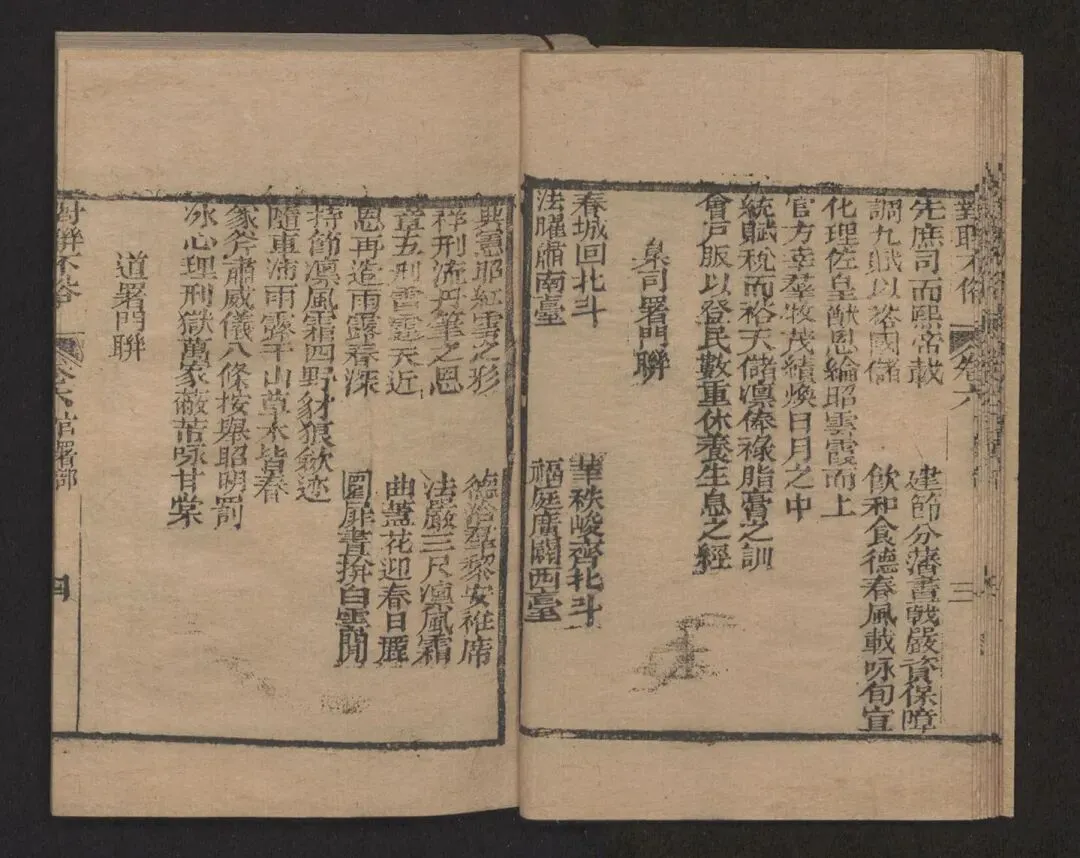 對聯不俗 卷六 三
先庶司而熙帝載 建節分藩畫戟嚴資保障
調九賦以裕國儲 飲和食德春風載咏旬宣
化理佐皇猷恩綸昭雲霞而上
官方率羣牧茂績煥日月之中
統賦稅而裕天儲凛俸祿脂膏之訓
會戶版以登民數重休養生息之經
臬司署門聯
春城回北斗 華秩峻齊北斗
法曜肅南臺 樞廷廣闢西臺
典憲耶紅雲之形 德洽羣黎安袵席
祥刑流丹筆之恩 法嚴三尺凛風霜
章五刑雷霆天近 曲蓋花迎春日麗
恩再造雨露春深 圜扉晝揜白雲閒
持節凛風霜四野豺狼歛迹
隨車沛雨露千山草木皆春
豸斧肅威儀八條按舉昭明罰
冰心理刑獄萬家蔽芾咏甘棠
道署門聯
對聯不俗 卷六官署部 四